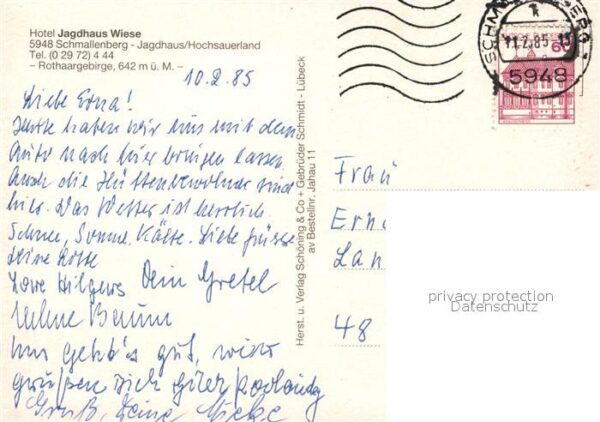 Hotel Jagdhaus Wiese
5948 Schmallenberg - Jagdhaus/Hochsauerland
Tel. (0 29 72) 4 44
– Rothaargebirge, 642 m ü. M. –
10.2.85
Liebe Erna!
Heute haben wir uns mit dem
Auto nach hier bringen lassen.
Auch die Hüttenbewohner sind
hier. Das Wetter ist herrlich.
Schnee, Sonne, Kälte. Liebe Grüsse
Deine Lotte
Dein Gretel
Uns geht's gut,
grüßen
Gruß, Deine
Herst. u. Verlag Schöning & Co + Gebrüder Schmidt - Lübeck
av Bestellnr. Jahau 11
SCHMALLENBERG
11.2.85
5948
60
Frau
Erna
Lan
48
privacy protection
Datenschutz